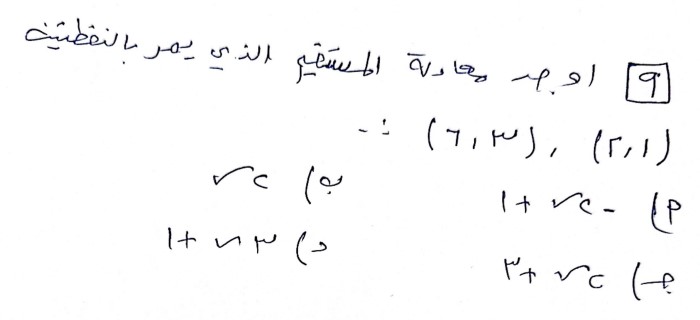 ٩ اوجد معادلة المستقيم الذي يمر بالنقطتين
(٢,١) , (٦,٣) :-
أ) -٢س + ١ ب) ٢س
ج) ٢س + ٣ د) ٣س + ١